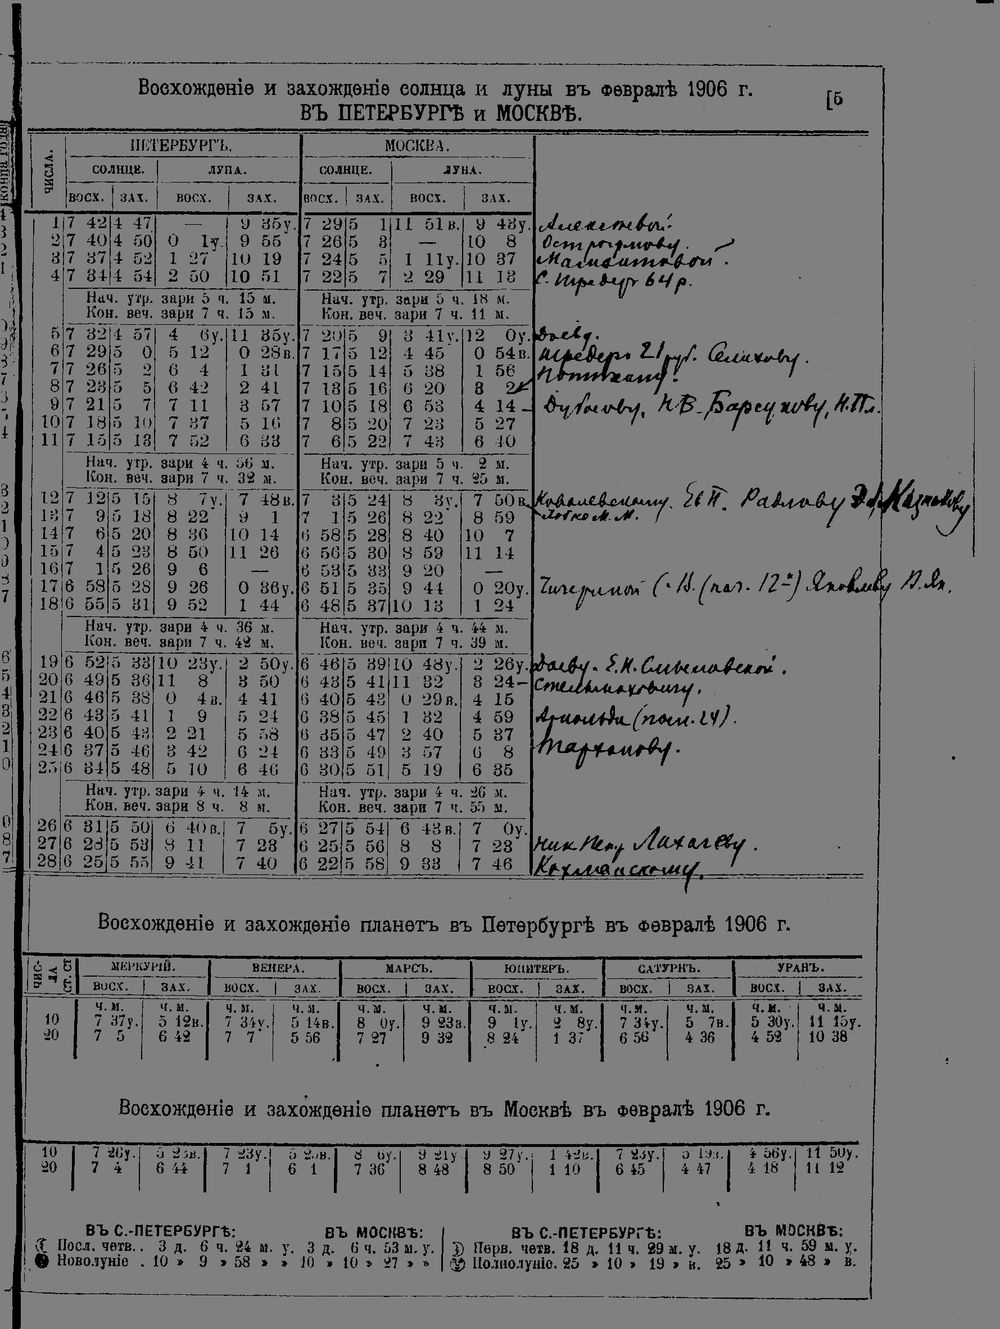 Восхожденіе и захожденіе солнца и луны въ февралѣ 1906 г.
[5
ВЪ ПЕТЕРБУРГѢ и МОСКВѢ.
ЧИСЛА. ПЕТЕРБУРГЪ. МОСКВА.
СОЛНЦЕ. ЛУНА. СОЛНЦЕ. ЛУНА.
ВОСХ. ЗАХ. ВОСХ. ЗАХ. ВОСХ. ЗАХ. ВОСХ. ЗАХ.
1 7 42 4 47 — 9 35у. 7 29 5 1 11 51в. 9 43у.
2 7 40 4 50 0 1у. 9 55 7 26 5 3 — 10 8 Остроумову.
3 7 37 4 52 1 27 10 19 7 24 5 5 1 11у. 10 37
4 7 34 4 54 2 50 10 51 7 22 5 7 2 29 11 13 64 р.
Нач. утр. зари 5 ч. 15 м. Нач. утр. зари 5 ч. 18 м.
Кон. веч. зари 7 ч. 15 м. Кон. веч. зари 7 ч. 11 м.
5 7 32 4 57 4 6у. 11 35у. 7 20 5 9 3 41у. 12 0у.
6 7 29 5 0 5 12 0 28в. 7 17 5 12 4 45 0 54в. Шредеръ 21 руб.
7 7 26 5 2 6 4 1 31 7 15 5 14 5 38 1 56
8 7 23 5 5 6 42 2 41 7 13 5 16 6 20 3 2
9 7 21 5 7 7 11 3 57 7 10 5 18 6 53 4 14 — Н.В. Барсукову, Н.Пл.
10 7 18 5 10 7 37 5 16 7 8 5 20 7 23 5 27
11 7 15 5 13 7 52 6 33 7 6 5 22 7 43 6 40
Нач. утр. зари 4 ч. 56 м. Нач. утр. зари 5 ч. 2 м.
Кон. веч. зари 7 ч. 32 м. Кон. веч. зари 7 ч. 25 м.
12 7 12 5 15 8 7у. 7 48в. 7 3 5 24 8 3у. 7 50в. Ковалевскому. Радлову
13 7 9 5 18 8 22 9 1 7 1 5 26 8 22 8 59
14 7 6 5 20 8 36 10 14 6 58 5 28 8 40 10 7
15 7 4 5 23 8 50 11 26 6 56 5 30 8 59 11 14
16 7 1 5 26 9 6 — 6 53 5 33 9 20 —
17 6 58 5 28 9 26 0 36у. 6 51 5 35 9 44 0 20у. Чичериной Яковлеву В. Як.
18 6 55 5 31 9 52 1 44 6 48 5 37 10 13 1 24
Нач. утр. зари 4 ч. 36 м. Нач. утр. зари 4 ч. 44 м.
Кон. веч. зари 7 ч. 42 м. Кон. веч. зари 7 ч. 39 м.
19 6 52 5 33 10 23у. 2 50у. 6 46 5 39 10 48у. 2 26у. Е.Н.
20 6 49 5 36 11 8 3 50 6 43 5 41 11 32 3 24 — Стельмаховичу.
21 6 46 5 38 0 4в. 4 41 6 40 5 43 0 29в. 4 15
22 6 43 5 41 1 9 5 24 6 38 5 45 1 32 4 59 Арнольди
23 6 40 5 43 2 21 5 58 6 35 5 47 2 40 5 37
24 6 37 5 46 3 42 6 24 6 33 5 49 3 57 6 8 Тарханову.
25 6 34 5 48 5 10 6 46 6 30 5 51 5 19 6 35
Нач. утр. зари 4 ч. 14 м. Нач. утр. зари 4 ч. 26 м.
Кон. веч. зари 8 ч. 8 м. Кон. веч. зари 7 ч. 55 м.
26 6 31 5 50 6 40в. 7 5у. 6 27 5 54 6 43в. 7 0у.
27 6 28 5 53 8 11 7 23 6 25 5 56 8 8 7 23 Ник Петр Лихачеву.
28 6 25 5 55 9 41 7 40 6 22 5 58 9 33 7 46
Восхожденіе и захожденіе планетъ въ Петербургѣ въ февралѣ 1906 г.
ЧИС-ЛА СТ. СТ МЕРКУРІЙ. ВЕНЕРА. МАРСЪ. ЮПИТЕРЪ. САТУРНЪ. УРАНЪ.
ВОСХ. ЗАХ. ВОСХ. ЗАХ. ВОСХ. ЗАХ. ВОСХ. ЗАХ. ВОСХ. ЗАХ. ВОСХ. ЗАХ.
ч. м. ч. м. ч. м. ч. м. ч. м. ч. м. ч. м. ч. м. ч. м. ч. м. ч. м. ч. м.
10 7 37у. 5 12в. 7 34у. 5 14в. 8 0у. 9 23в. 9 1у. 2 8у. 7 34у. 5 7в. 5 30у. 11 15у.
20 7 5 6 42 7 7 5 56 7 27 9 32 8 24 1 37 6 56 4 36 4 52 10 38
Восхожденіе и захожденіе планетъ въ Москвѣ въ февралѣ 1906 г.
10 7 26у. 5 25в. 7 23у. 5 25в. 8 6у. 9 21у 9 27у. 1 42в. 7 23у. 5 19в. 4 56у. 11 50у.
20 7 4 6 44 7 1 6 1 7 36 8 48 8 50 1 10 6 45 4 47 4 18 11 12
ВЪ С.-ПЕТЕРБУРГѢ: ВЪ МОСКВѢ: ВЪ С.-ПЕТЕРБУРГѢ: ВЪ МОСКВѢ:
Посл. четв.. 3 д. 6 ч. 24 м. у. 3 д. 6 ч. 53 м. у. Перв. четв. 18 д. 11 ч. 29 м. у. 18 д. 11 ч. 59 м. у.
Новолуніе . 10 » 9 » 58 » » 10 » 10 » 27 » » Полнолуніе. 25 » 10 » 19 » в. 25 » 10 » 48 » в.